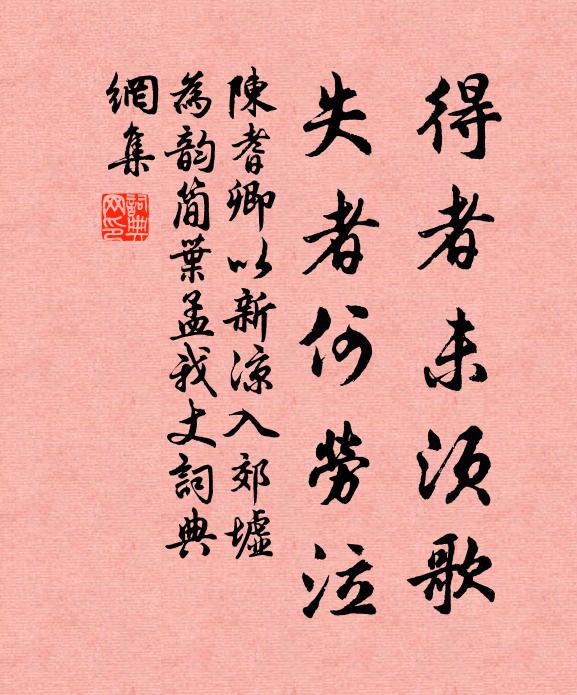 得者未須歌
失者何勞泣
陳耆卿以新涼入郊墟
為韵簡葉孟我丈詞典
網集
詞典網印